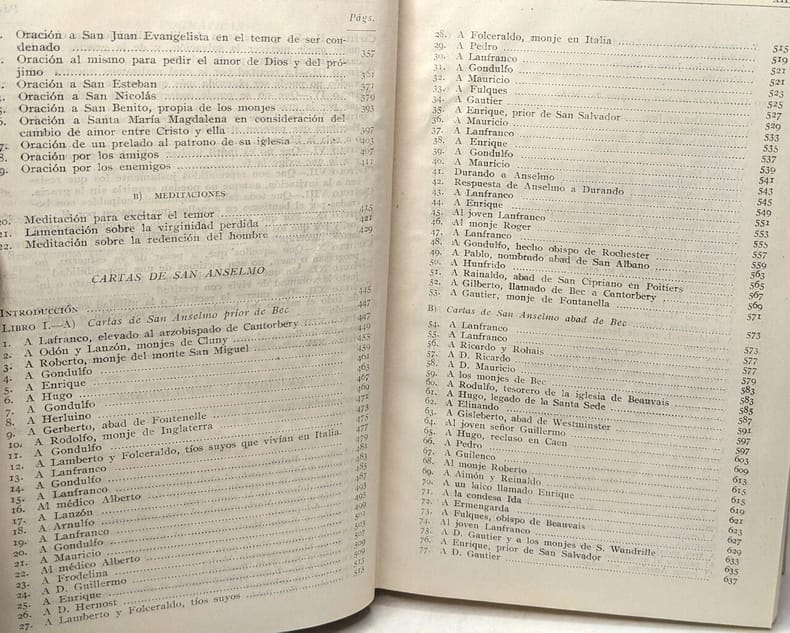 Págs.
Oración a San Juan Evangelista en el temor de ser con-
denado 357
Oración al mismo para pedir el amor de Dios y del pró-
jimo 361
Oración a San Esteban 371
Oración a San Nicolás 379
Oración a San Benito, propia de los monjes 393
Oración a Santa María Magdalena en consideración del
cambio de amor entre Cristo y ella 397
7. Oración de un prelado al patrono de su iglesia 403
8. Oración por los amigos 407
9. Oración por los enemigos 411
B) MEDITACIONES
20. Meditación para excitar el temor 415
21. Lamentación sobre la virginidad perdida 421
22. Meditación sobre la redención del hombre 429
CARTAS DE SAN ANSELMO
INTRODUCCIÓN 445
LIBRO I.—A) Cartas de San Anselmo prior de Bec 447
1. A Lafranco, elevado al arzobispado de Cantorbery 447
2. A Odón y Lanzón, monjes de Cluny 449
3. A Roberto, monje del monte San Miguel
4. A Gondulfo
5. A Enrique
6. A Hugo
7. A Gondulfo
8. A Herluino
9. A Gerberto, abad de Fontenelle
10. A Rodolfo, monje de Inglaterra
11. A Gondulfo
12. A Lamberto y Folceraldo, tíos suyos que vivían en Italia.
13. A Lanfranco
14. A Gondulfo
15. A Lanfranco
16. Al médico Alberto
17. A Lanzón
18. A Arnulfo
19. A Lanfranco
20. A Gondulfo
21. A Mauricio
22. Al médico Alberto
23. A Frodelina
24. A D. Guillermo
25. A Enrique
26. A D. Hernost
27. A Lamberto y Folceraldo, tíos suyos 515
28. A Folceraldo, monje en Italia 515
29. A Pedro 519
30. A Lanfranco 521
31. A Gondulfo 521
32. A Mauricio 523
33. A Fulques 525
34. A Gautier 527
35. A Enrique, prior de San Salvador 529
36. A Mauricio 533
37. A Lanfranco 535
38. A Enrique 537
39. A Gondulfo 539
40. A Mauricio 541
41. Durando a Anselmo 543
42. Respuesta de Anselmo a Durando 545
43. A Lanfranco 549
44. A Enrique 551
45. Al joven Lanfranco 553
46. Al monje Roger 555
47. A Lanfranco 557
48. A Gondulfo, hecho obispo de Rochester 559
49. A Pablo, nombrado abad de San Albano 563
50. A Hunfrido 565
51. A Rainaldo, abad de San Cipriano en Poitiers 567
52. A Gilberto, llamado de Bec a Cantorbery 569
53. A Gautier, monje de Fontanella 571
B) Cartas de San Anselmo abad de Bec
54. A Lanfranco 573
55. A Lanfranco 577
56. A Ricardo y Rohais 577
57. A D. Ricardo 579
58. A D. Mauricio 583
59. A los monjes de Bec 583
60. A Rodulfo, tesorero de la iglesia de Beauvais 585
61. A Hugo, legado de la Santa Sede 587
62. A Elinando 591
63. A Gisleberto, abad de Westminster 597
64. Al joven señor Guillermo 597
65. A Hugo, recluso en Caen 603
66. A Pedro 609
67. A Guilenco 613
68. Al monje Roberto 615
69. A Aimón y Reinaldo 615
70. A un laico llamado Enrique 619
71. A la condesa Ida 621
72. A Ermengarda 623
73. A Fulques, obispo de Beauvais 627
74. Al joven Lanfranco 629
75. A D. Gautier y a los monjes de S. Wandrille 633
76. A Enrique, prior de San Salvador 635
77. A D. Gautier 637